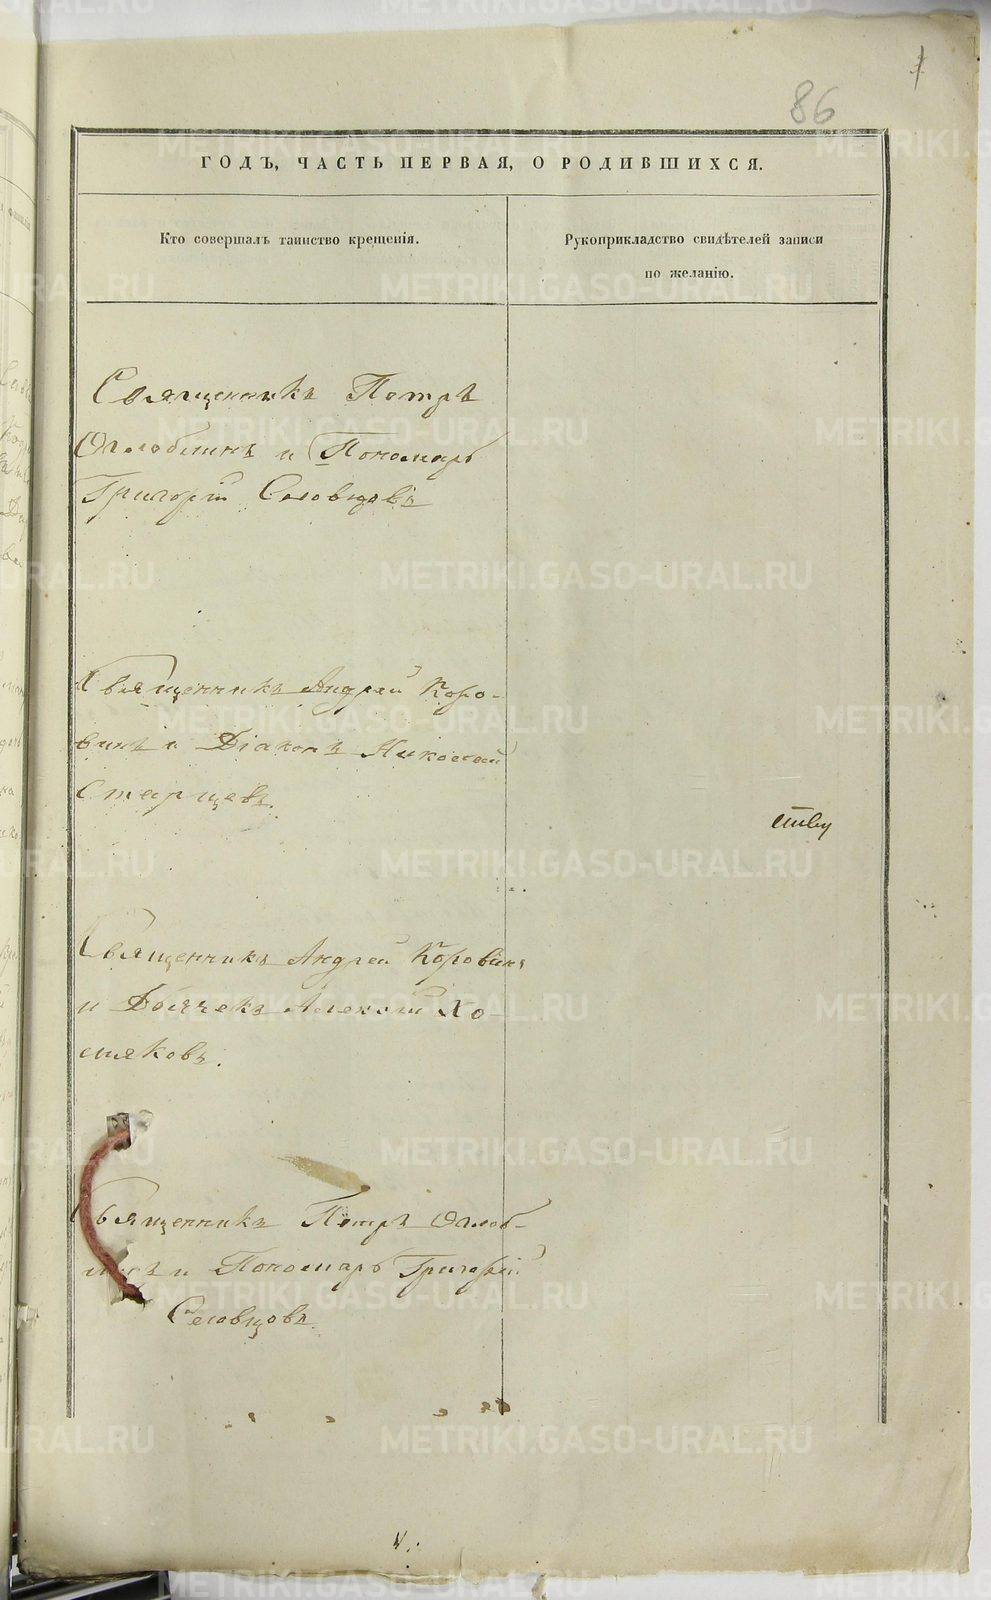 86
ГОДЪ, ЧАСТЬ ПЕРВАЯ, О РОДИВШИХСЯ.
Кто совершалъ таинство крещенія.
Рукоприкладство свидѣтелей записи
по желанію.
Священникъ Петръ
Оглоблинъ и Пономарь
Григорій Словцовъ
Священникъ Андрей Коро-
винъ и Діаконъ Николай
Старцевъ.
ству
Священникъ Андрей Коровинъ
и Дьячекъ Алексѣй Хо-
мяковъ.
Священникъ Петръ Оглоб-
линъ и Пономарь Григорій
Словцовъ.
METRIKI.GASO-URAL.RU